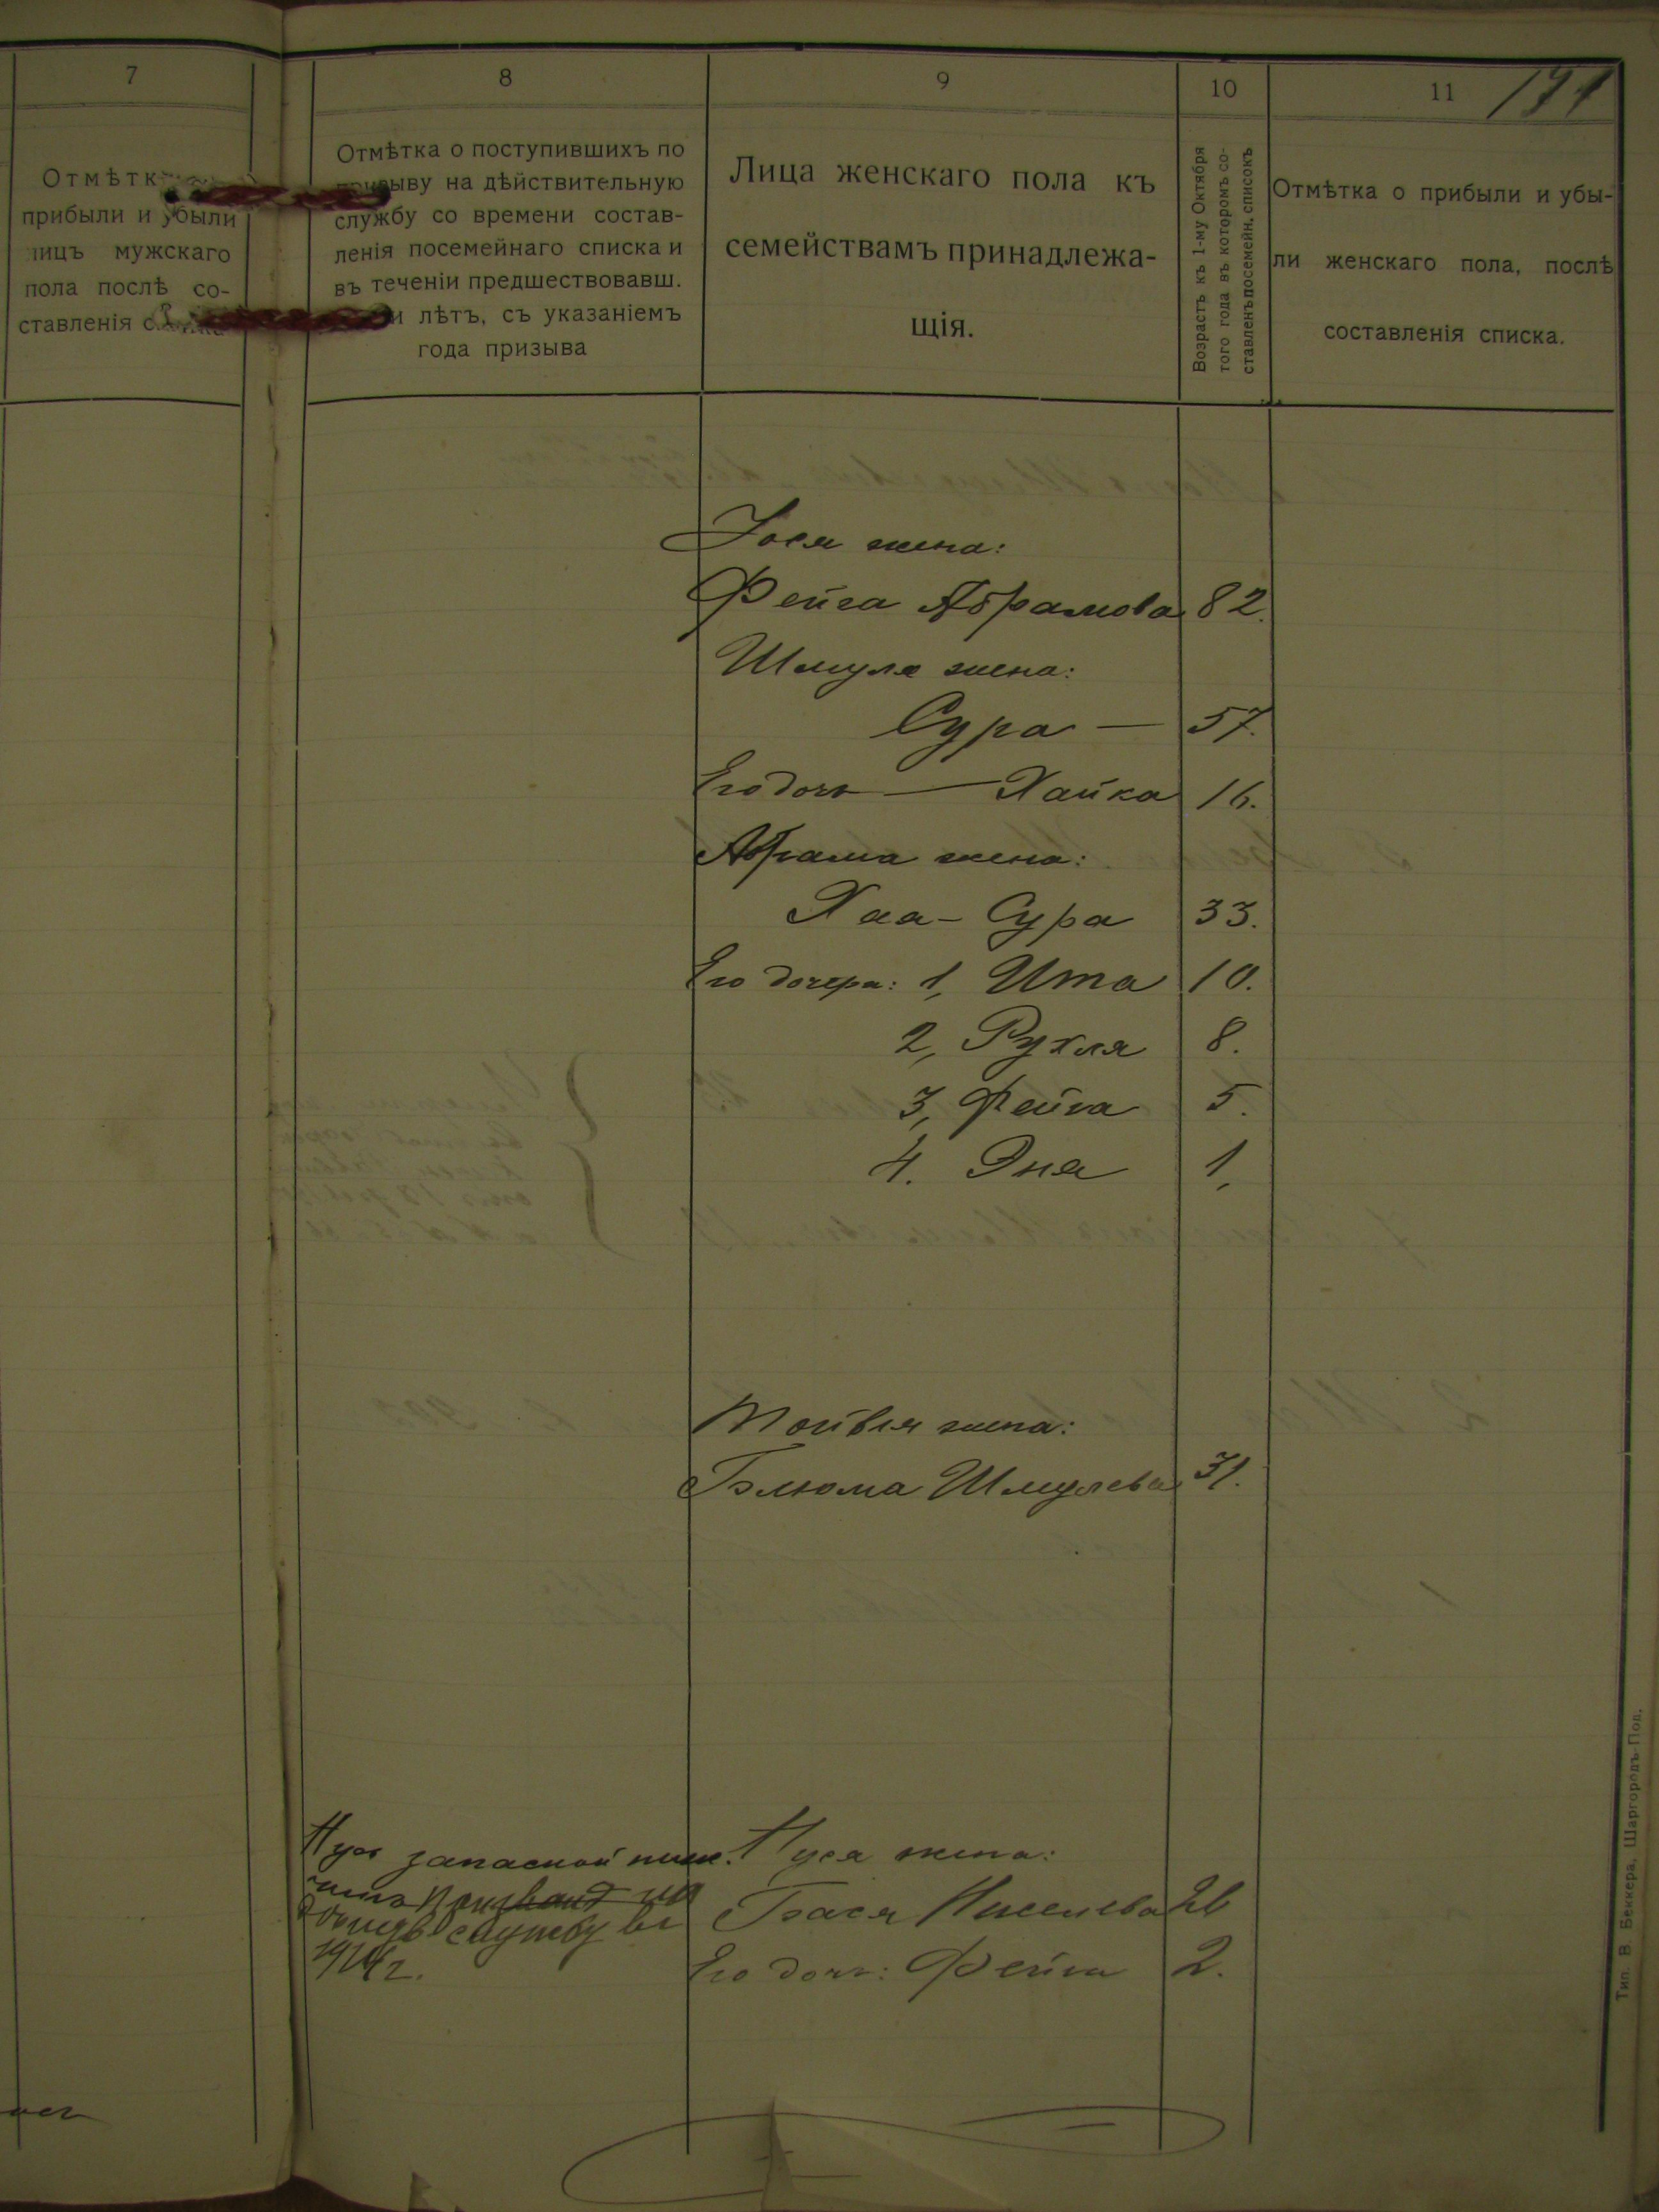 7
8
9
10
11
191
Отмѣтк
прибыли и убыли
лицъ мужскаго
пола послѣ со-
ставленія
Отмѣтка о поступившихъ по
призыву на дѣйствительную
службу со времени состав-
ленія посемейнаго списка и
въ теченіи предшествовавш.
и лѣтъ, съ указаніемъ
года призыва
Лица женскаго пола къ
семействамъ принадлежа-
щія.
Возрастъ къ 1-му Октября
того года въ которомъ со-
ставленъ посемейн. списокъ
Отмѣтка о прибыли и убы-
ли женскаго пола, послѣ
составленія списка.
Іося жена:
Фейга Абрамова 82.
Шмуля жена:
Сура — 57.
Его дочь — Хайка 16.
Абрама жена:
Хаа - Сура 33.
Его дочера: 1, Ита 10.
2, Рухля 8.
3, Фейга 5.
4. Эня 1,
Мойвья жена:
Блюма Шмулева 31.
Нусъ запасной
службу въ
1914 г.
Нуся жена:
Бася 26
Его дочь: Фейга 2.
Тип. В. Беккера, Шаргородъ-Под.